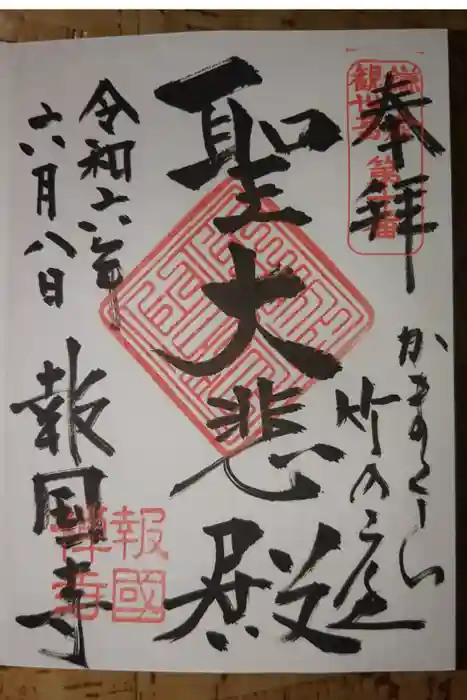 奉拝
鎌倉
観世音
第十番
かまくら
竹の庭
聖大悲殿
令和六年
六月八日
報国寺
報國
禪寺